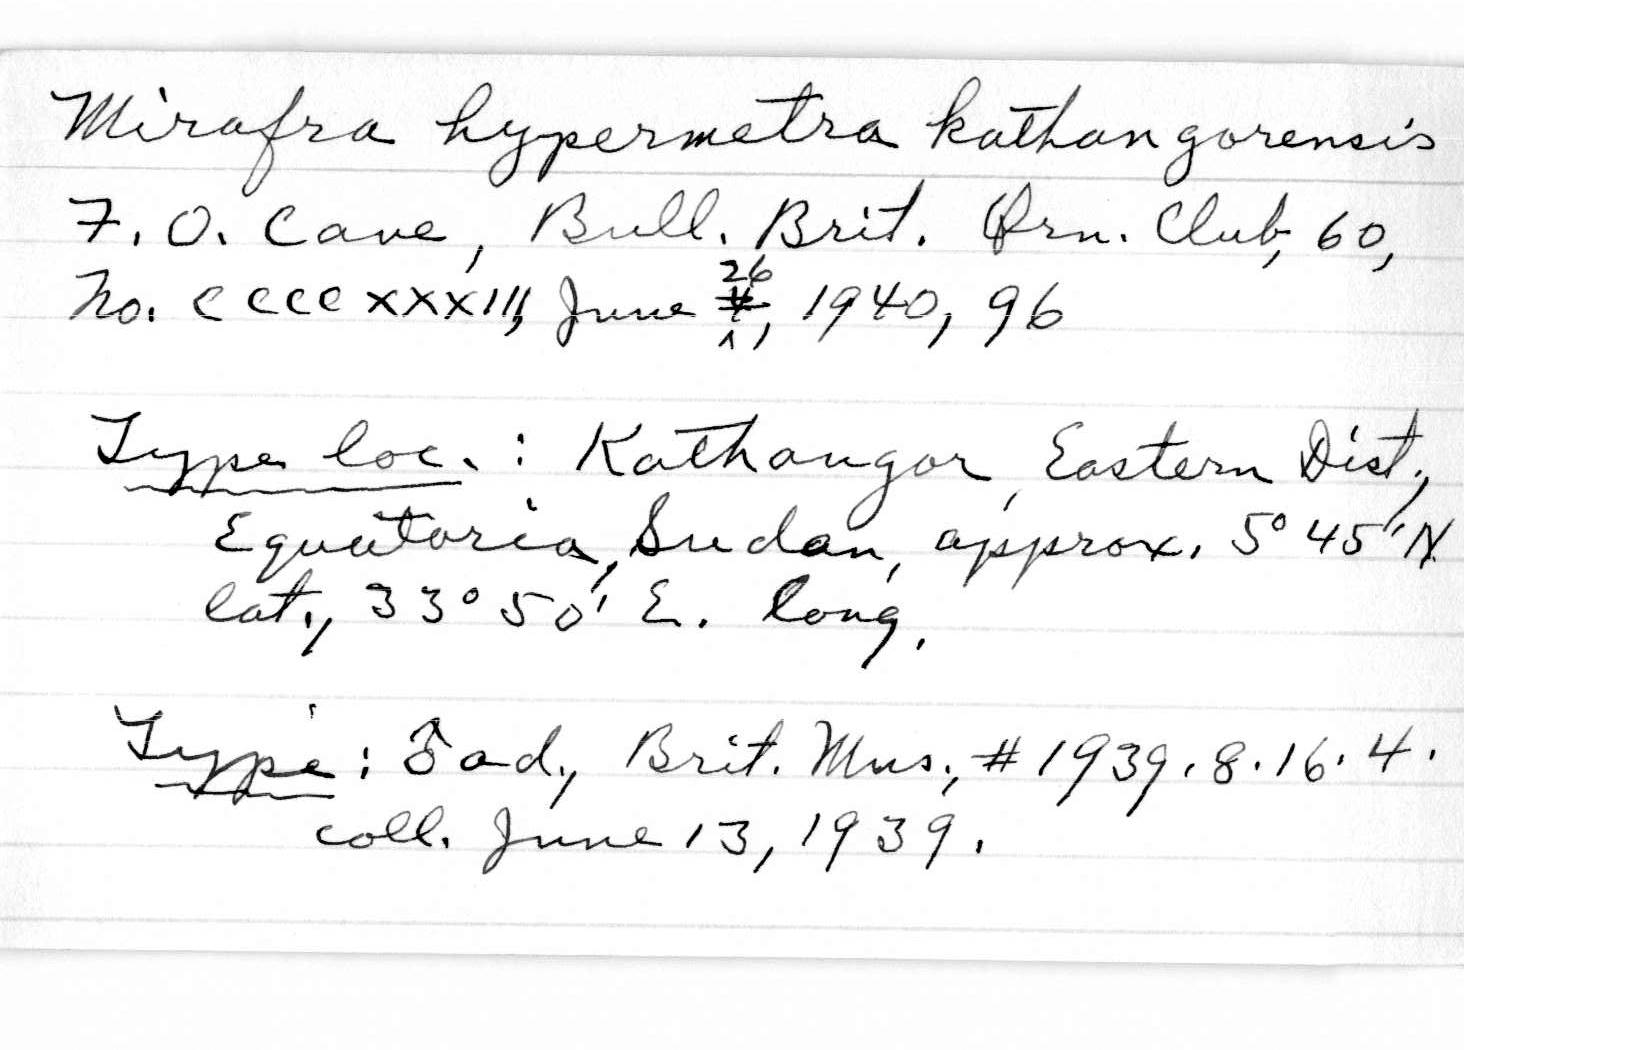 Mirafra hypermetra kathangorensis
F. O. Cave, Bull. Brit. Orn. Club, 60,
No. CCCCXXXIII, June 26, 1940, 96
Type loc. : Kathangor, Eastern Dist.,
Equatoria, Sudan, approx. 5° 45' N.
lat., 33° 50' E. long.
Type : ♂ ad., Brit. Mus., # 1939.8.16.4.
coll. June 13, 1939.